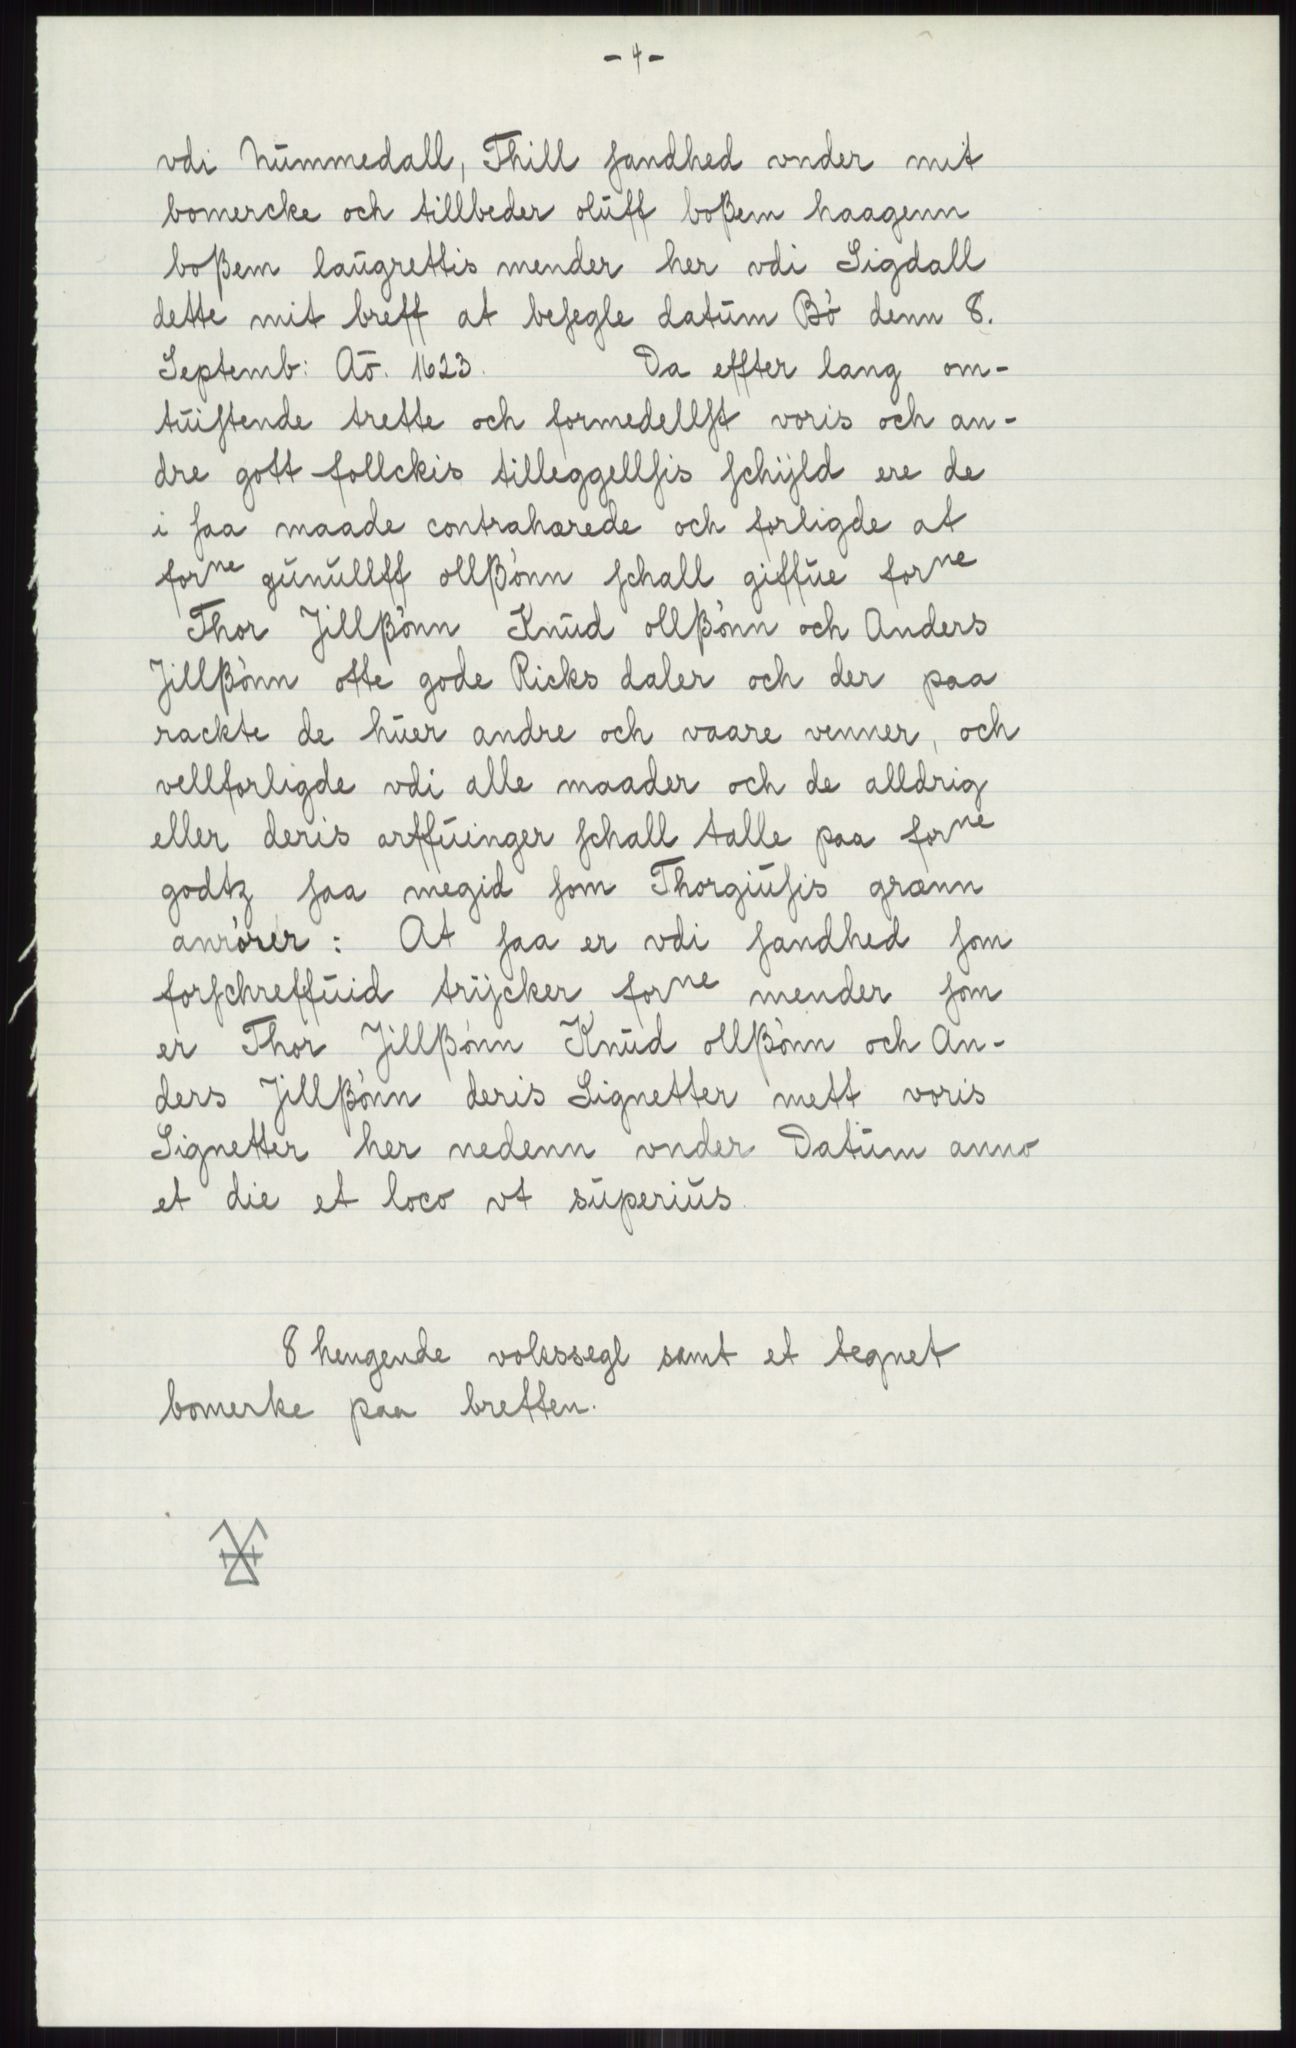 - 4 -
vdi Nūmmedall, Thill ſandhed vnder mit
bomercke och tillbeder olūff boßem haagenn
boßem laūgrettis mender her vdi Sigdall
dette mit breff at beſegle datūm Bó denn 8.
Septemb: Aō. 1623. Da effter lang om-
tūiſtende trette och formedellſt voris och an-
dre gott follckis tilleggellſis ſchÿld ere de
i ſaa maade contraherede och forligde at
forne gūnūllff ollßónn ſchall giffūe forne
Thor Jillßónn Knūd ollßónn och Anders
Jillßónn otte gode Ricks daler och der paa
rackte de hūer andre och vaare venner, och
vellforligde vdi alle maader och de alldrig
eller deris arffūinger ſchall talle paa forne
godtz ſaa megid ſom Thorgiūſis grænn
anrórer: At ſaa er vdi ſandhed ſom
forſchreffūid trÿcker forne mender ſom
er Thor Jillßónn Knūd ollßónn och An-
ders Jillßónn deris Signetter mett voris
Signetter her nedenn vnder Datūm anno
et die et loco vt sūperiūs.
8 hengende vokssegl samt et tegnet
bomerke paa bretten.